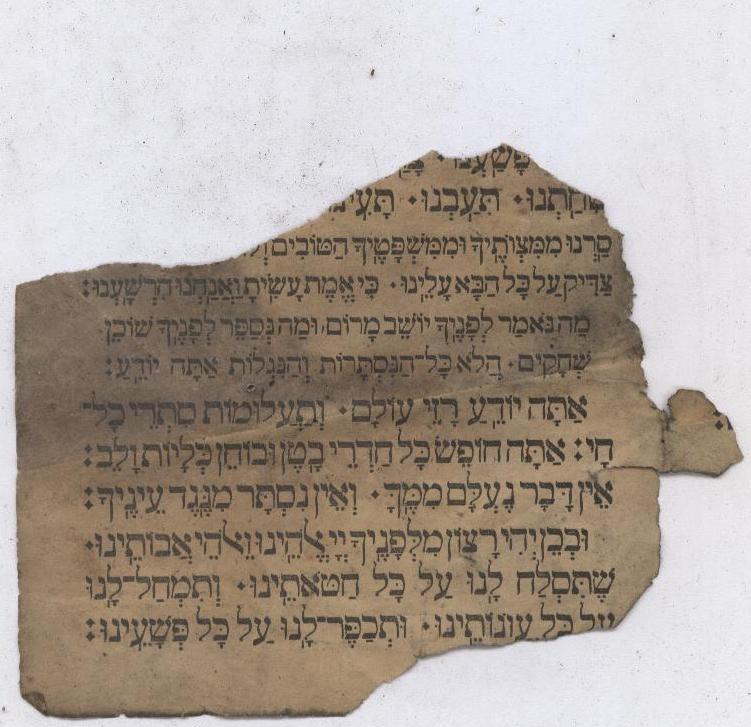 פָּשַׁעְנוּ
שִׁחַתְנוּ· תִּעַבְנוּ· תָּעִינוּ
סַרְנוּ מִמִּצְוֹתֶיךָ וּמִמִּשְׁפָּטֶיךָ הַטּוֹבִים
צַדִּיק עַל כָּל הַבָּא עָלֵינוּ· כִּי אֱמֶת עָשִׂיתָ וַאֲנַחְנוּ הִרְשָׁעְנוּ:
מַה נֹּאמַר לְפָנֶיךָ יוֹשֵׁב מָרוֹם, וּמַה נְּסַפֵּר לְפָנֶיךָ שׁוֹכֵן
שְׁחָקִים· הֲלֹא כָּל־הַנִּסְתָּרוֹת וְהַנִּגְלוֹת אַתָּה יוֹדֵעַ:
אַתָּה יוֹדֵעַ רָזֵי עוֹלָם· וְתַעֲלוּמוֹת סִתְרֵי כָל־
חָי: אַתָּה חוֹפֵשׂ כָּל חַדְרֵי בָטֶן וּבוֹחֵן כְּלָיוֹת וָלֵב:
אֵין דָּבָר נֶעְלָם מִמֶּךָּ· וְאֵין נִסְתָּר מִנֶּגֶד עֵינֶיךָ:
וּבְכֵן יְהִי רָצוֹן מִלְּפָנֶיךָ יְיָ אֱלֹהֵינוּ וֵאלֹהֵי אֲבוֹתֵינוּ·
שֶׁתִּסְלַח לָנוּ עַל כָּל חַטֹּאתֵינוּ· וְתִמְחַל־לָנוּ
עַל כָּל עֲוֹנוֹתֵינוּ· וּתְכַפֶּר־לָנוּ עַל כָּל פְּשָׁעֵינוּ: